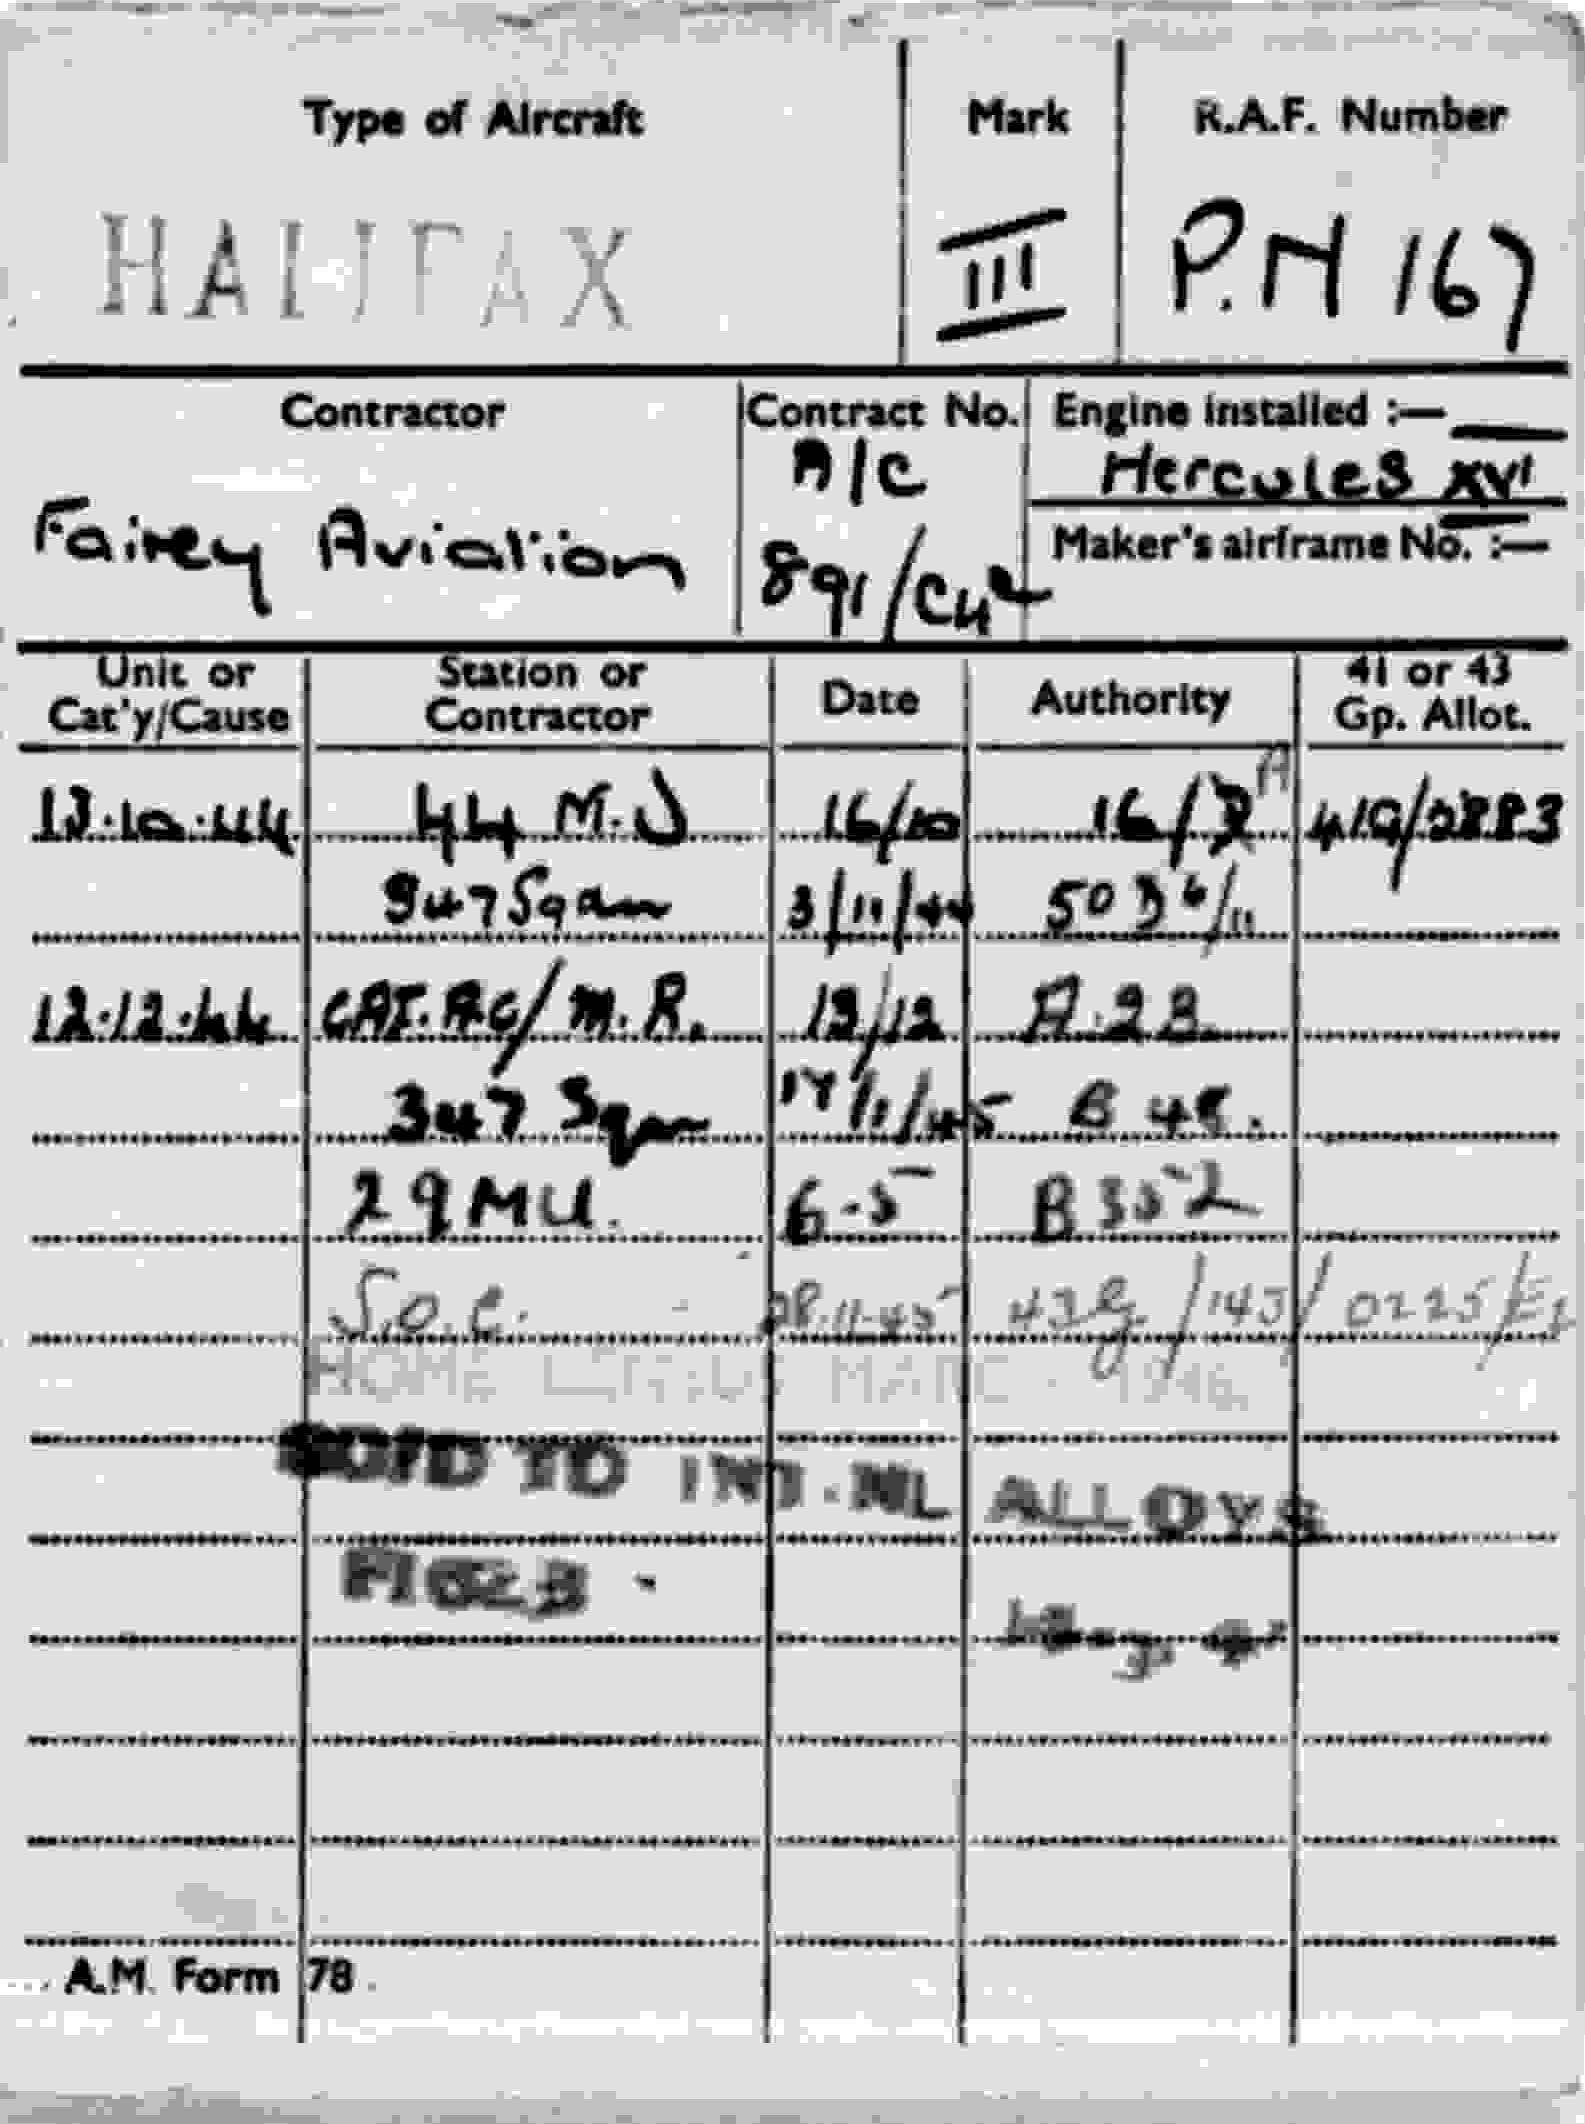 Type of Aircraft Mark R.A.F. Number
HALIFAX III P.N 167
Contractor Contract No. Engine installed :—
Fairey Aviation A/C Hercules XVI
891/C4 2 Maker's airframe No. :—
Unit or Cat'y/Cause Station or Contractor Date Authority 41 or 43 Gp. Allot.
13.10.44 44 M.U 16/10 16/ A 41G/2883
347 Sqdn 3/11/44 50 B 6/11
12.12.44 CAT.AC/M.R. 13/12 A.2B
347 Sqdn 17/1/45 B 48.
29 MU. 6.5 B352
S.O.C. 28.11.45 43 G/143/0225/
HOME CENSUS MARC 1946
SOLD TO INT.NL ALLOYS
A.M. Form 78